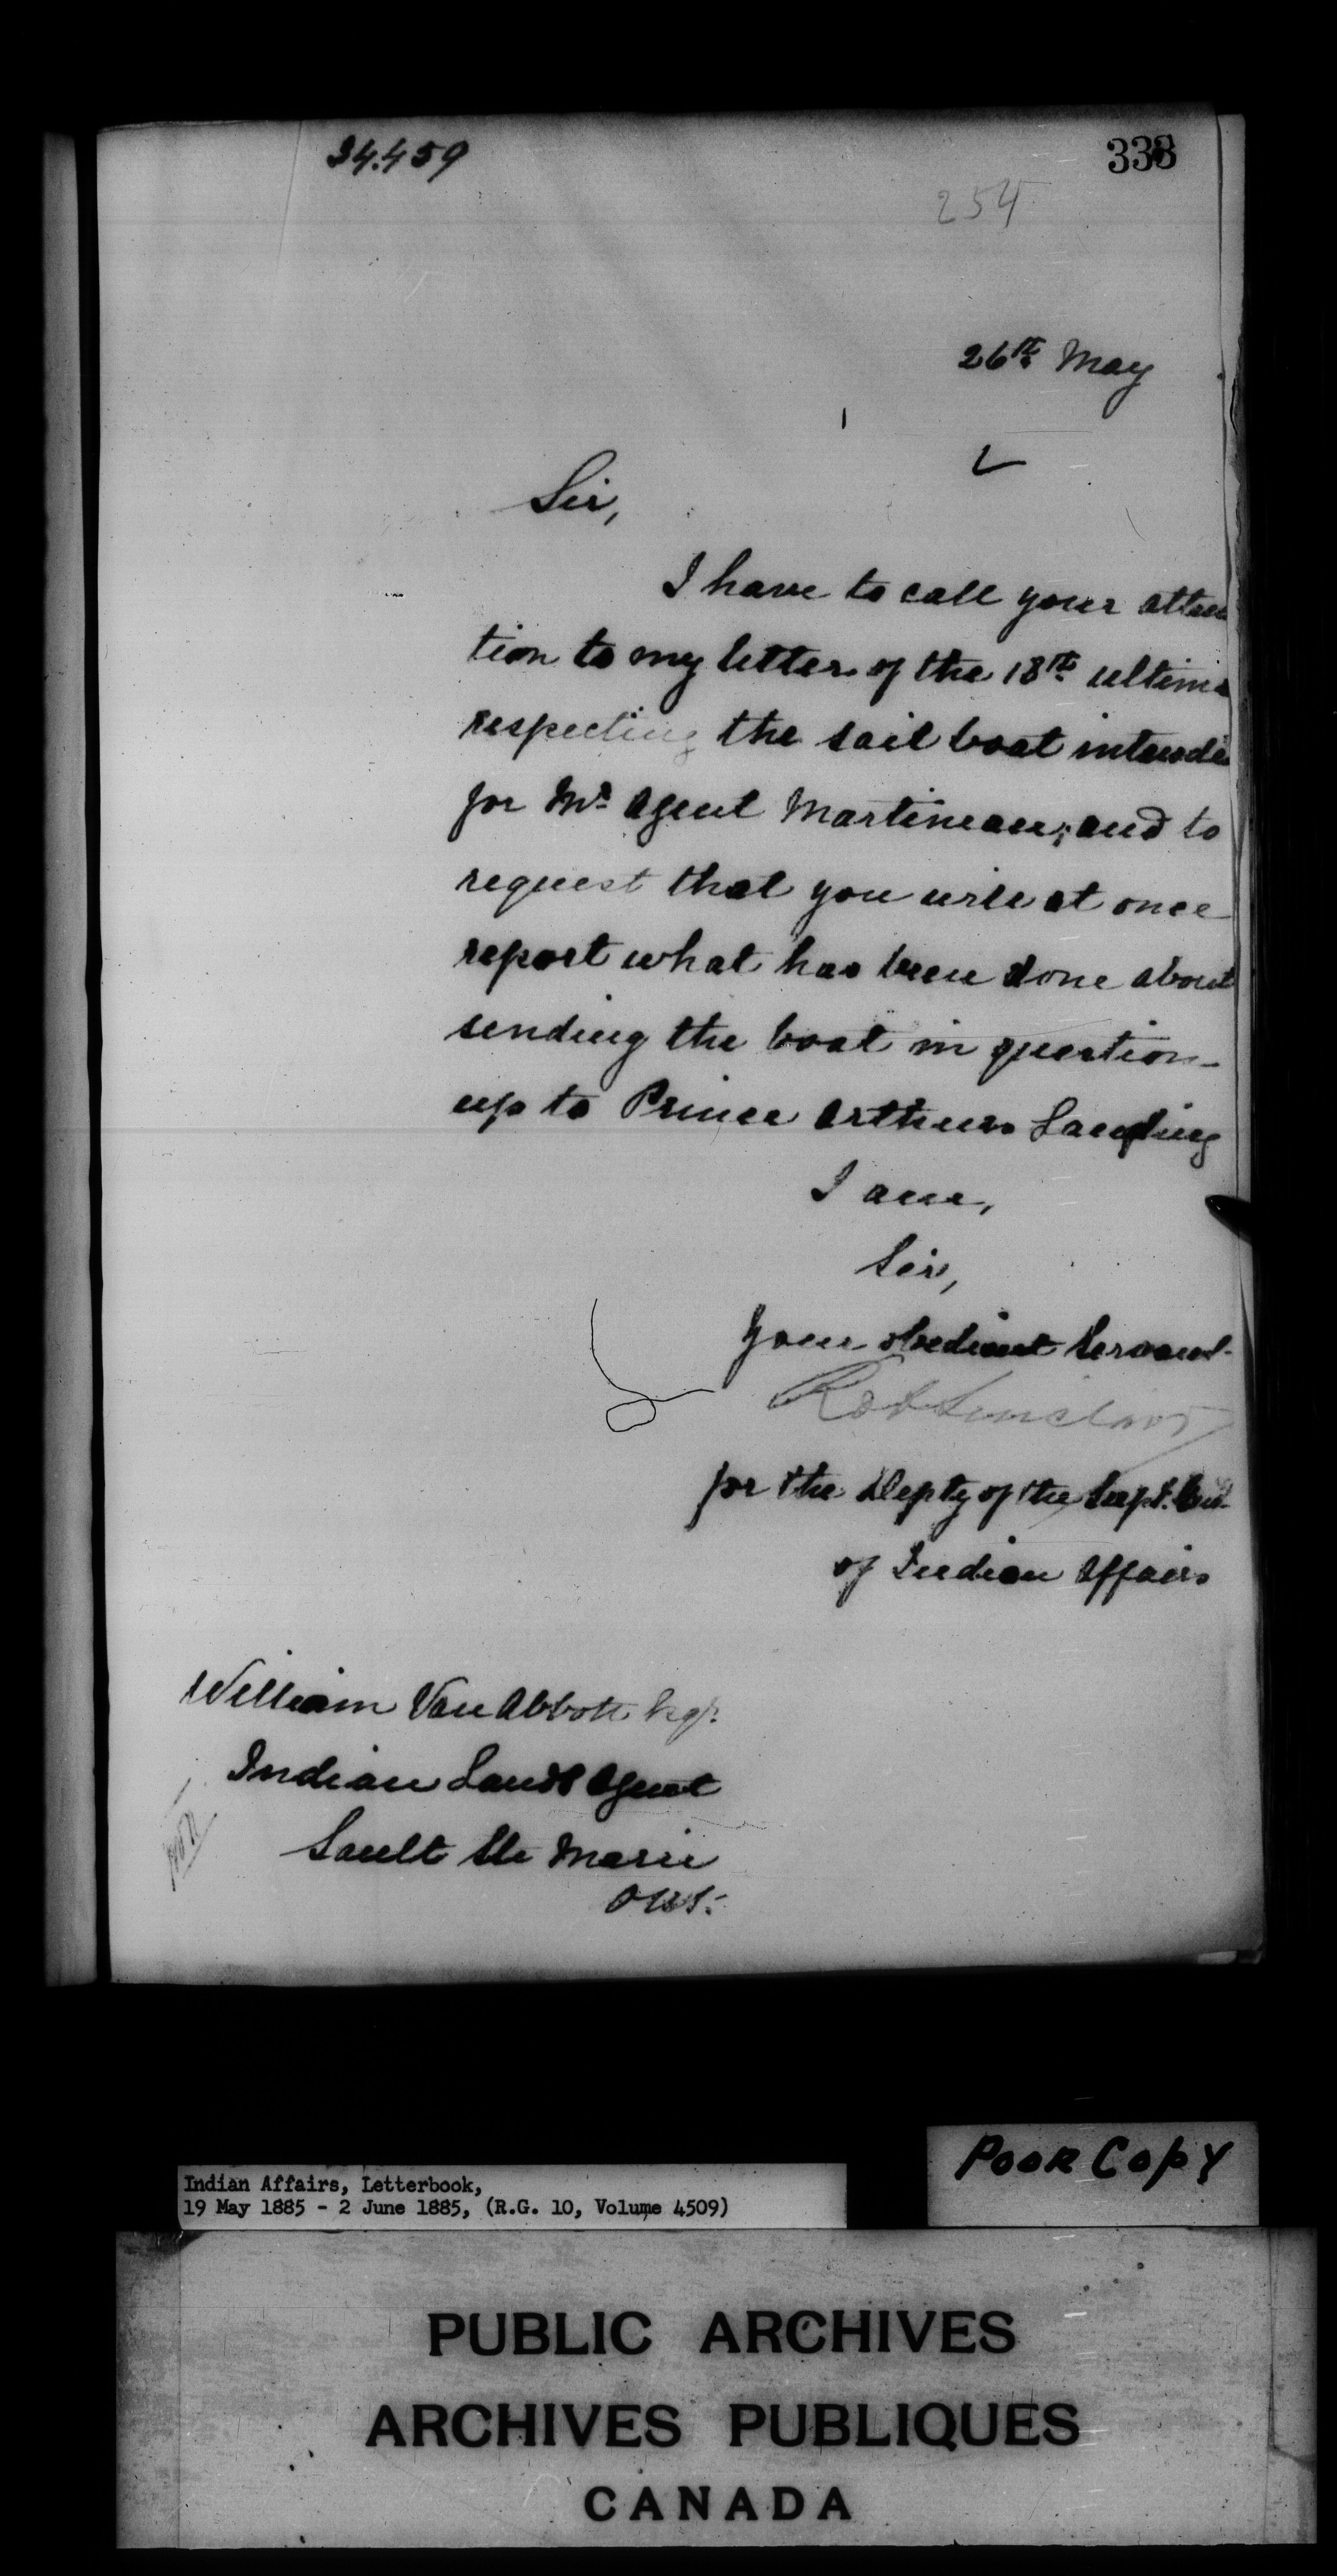 34.459
333
254
26th May
Sir,
I have to call your atten
tion to my letter of the 18th ultimo
respecting the sail boat intende
for Mr Agent Martineau; and to
request that you will at once
report what has been done about
sending the boat in question
up to Prince Arthurs Landing
I am,
Sir,
Your obedient Servant
Robt Sinclair
for the Depty of the Supt. Gen
of Indian Affairs
William Van Abbott Esqr.
Indian Lands Agent
Sault Ste Marie
Ont.
POOR COPY
Indian Affairs, Letterbook,
19 May 1885 - 2 June 1885, (R.G. 10, Volume 4509)
PUBLIC ARCHIVES
ARCHIVES PUBLIQUES
CANADA